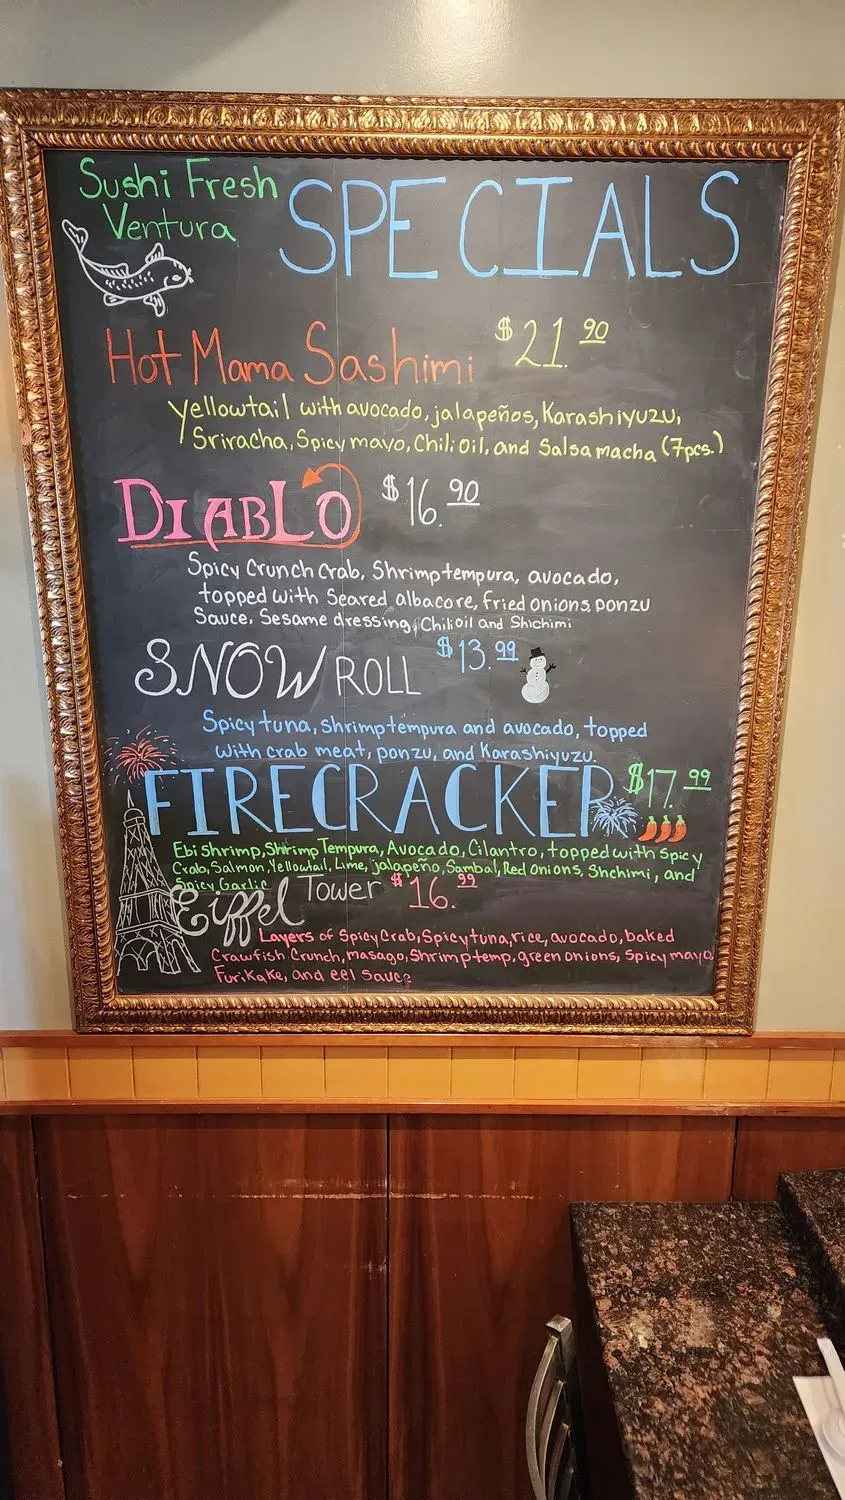 Sushi Fresh
Ventura
SPECIALS
Hot Mama Sashimi $21.90
Yellowtail with avocado, jalapeños, Karashiyuzu,
Sriracha, Spicy mayo, Chili oil, and Salsa macha (7pcs.)
DIABLO $16.90
Spicy Crunch Crab, Shrimp tempura, avocado,
topped with Seared albacore, fried onions, ponzu
Sauce, Sesame dressing, Chili oil and Shichimi
SNOW ROLL $13.99
Spicy tuna, shrimp tempura and avocado, topped
with crab meat, ponzu, and Karashiyuzu.
FIRECRACKER $17.99
Ebi Shrimp, Shrimp Tempura, Avocado, Cilantro, topped with Spicy
Crab, Salmon, Yellowtail, Lime, jalapeño, Sambal, Red Onions, Shchimi, and
Spicy Garlic
Eiffel Tower $16.99
Layers of Spicy Crab, Spicy tuna, rice, avocado, baked
Crawfish Crunch, masago, Shrimp temp, green onions, Spicy mayo,
Furikake, and eel sauce